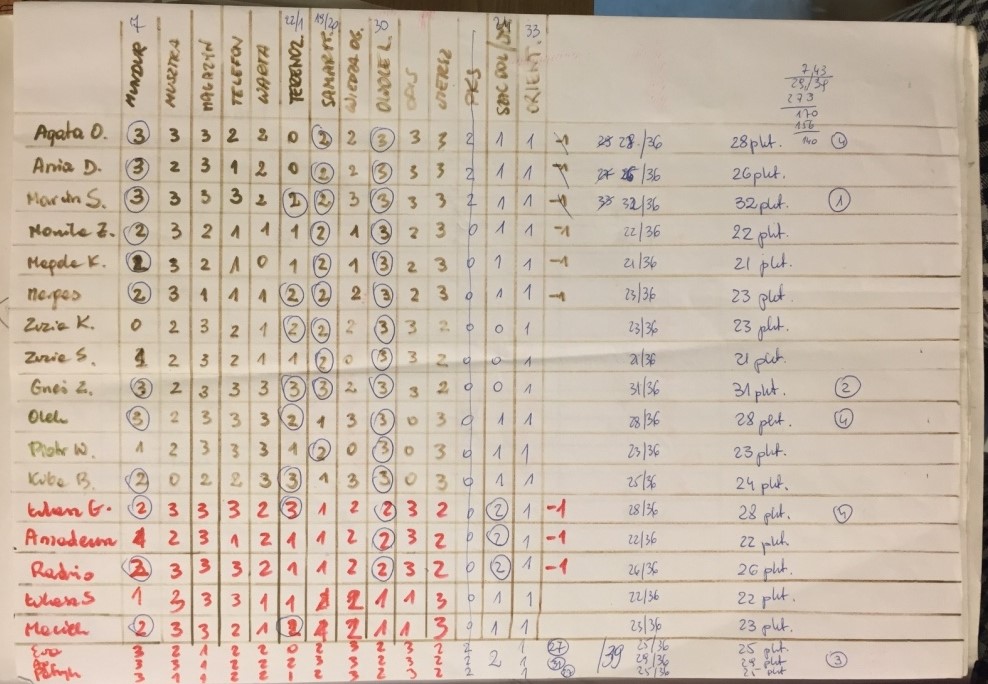 7 22/1 19/20 30 33
MUNDUR MUSZTRA MAGAZYN TELEFON WARTA SAMARYT. OPIS PRS ORIENT.
7,43
273
170
156
140
Agata O. 3 3 3 2 2 0 2 2 3 3 3 2 1 1 28/36 28 pkt. 4
Ania D. 3 2 3 1 2 0 2 2 3 3 3 2 1 1 26/36 26 pkt.
Marcin S. 3 3 3 3 2 2 2 3 3 3 3 2 1 1 32/36 32 pkt. 1
Monika Z. 2 3 2 1 1 1 2 1 3 2 3 0 1 1 -1 22/36 22 pkt.
Magda K. 2 3 2 1 0 1 2 1 3 2 3 0 1 1 -1 21/36 21 pkt.
2 3 1 1 1 2 2 2 3 2 3 0 1 1 -1 23/36 23 pkt.
Zuzia K. 0 2 3 2 1 2 2 2 3 3 2 0 0 1 23/36 23 pkt.
Zuzia S. 1 2 3 2 1 1 2 0 3 3 2 0 0 1 21/36 21 pkt.
3 2 3 3 3 3 3 2 3 3 2 0 0 1 31/36 31 pkt. 2
Olek 3 2 3 3 3 2 1 3 3 0 3 0 1 1 28/36 28 pkt. 4
Piotr W. 1 2 3 3 3 1 2 0 3 0 3 0 1 1 23/36 23 pkt.
Kuba B. 2 0 2 2 3 3 1 3 3 0 3 0 1 1 25/36 24 pkt.
Łukasz G. 2 3 3 3 2 3 1 2 2 3 2 0 2 1 -1 28/36 28 pkt. 4
2 3 1 2 1 1 2 2 3 2 0 2 1 -1 22/36 22 pkt.
3 3 3 2 1 1 2 2 3 2 0 2 1 -1 26/36 26 pkt.
Łukasz S 1 3 3 3 1 1 2 2 1 1 3 0 1 1 22/36 22 pkt.
Maciek 2 3 3 2 1 2 2 2 1 1 3 0 1 1 23/36 23 pkt.
Ewa 3 2 1 2 2 0 2 3 2 3 2 2 1 27 25/36 25 pkt.
2 /39 29/36 29 pkt 3
Patryk 25/36 25 pkt